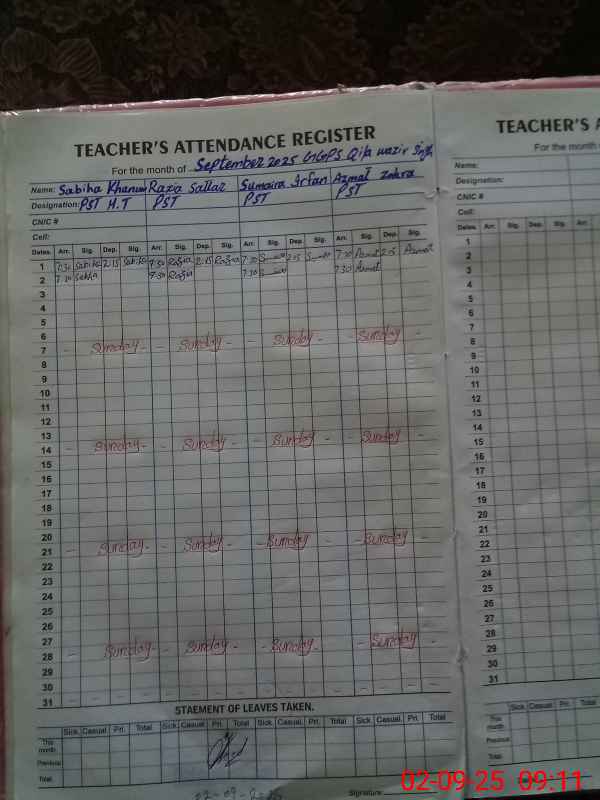 TEACHER'S ATTENDANCE REGISTER
For the month of September 2025 GGPS Qila wazir Singh
Name: Sabiha Khanum Razia Sattar Sumaira Irfan Azmat Zahra
Designation: PST H.T PST PST PST
CNIC #
Cell:
Dates. Arr. Sig. Dep. Sig. Arr. Sig. Dep. Sig. Arr. Sig. Dep. Sig. Arr. Sig. Dep. Sig.
1 7:30 Sabiha 2:15 Sabiha 7:30 Razia 2:15 Razia 7:30 2:15 7:30 Azmat 2:15 Azmat
2 7:30 Sabiha 7:30 Razia 7:30 7:30 Azmat
3
4
5
6
7 - Sunday - - Sunday - - Sunday - - Sunday -
8
9
10
11
12
13
14 - Sunday - - Sunday - - Sunday - - Sunday -
15
16
17
18
19
20
21 - Sunday - - Sunday - - Sunday - - Sunday -
22
23
24
25
26
27
28 - Sunday - - Sunday - - Sunday - - Sunday -
29
30
31
STAEMENT OF LEAVES TAKEN.
Sick. Casual. Pri. Total Sick. Casual. Pri. Total Sick. Casual. Pri. Total Sick. Casual. Pri. Total
This month
Previous
Total
Signature
TEACHER'S A
For the month
Name:
Designation:
CNIC #
Cell:
Dates. Arr. Sig. Dep. Sig. Arr.
1
2
3
4
5
6
7
8
9
10
11
12
13
14
15
16
17
18
19
20
21
22
23
24
25
26
27
28
29
30
31
Sick. Casual. Pri. Total
This month
Previous
Total
02-09-25 09:11